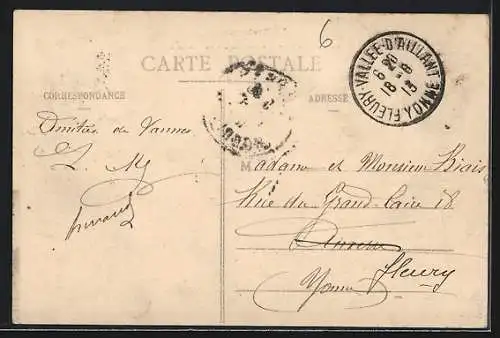 6
CARTE POSTALE
CORRESPONDANCE
ADRESSE
FLEURY-VALLÉE-D'AILLANT
YONNE
6 20
18 -8
13
Amitiés de Vannes
L. M
Madame et Monsieur Biais
Rue du Grand-Caire 18
Fleury
Yonne